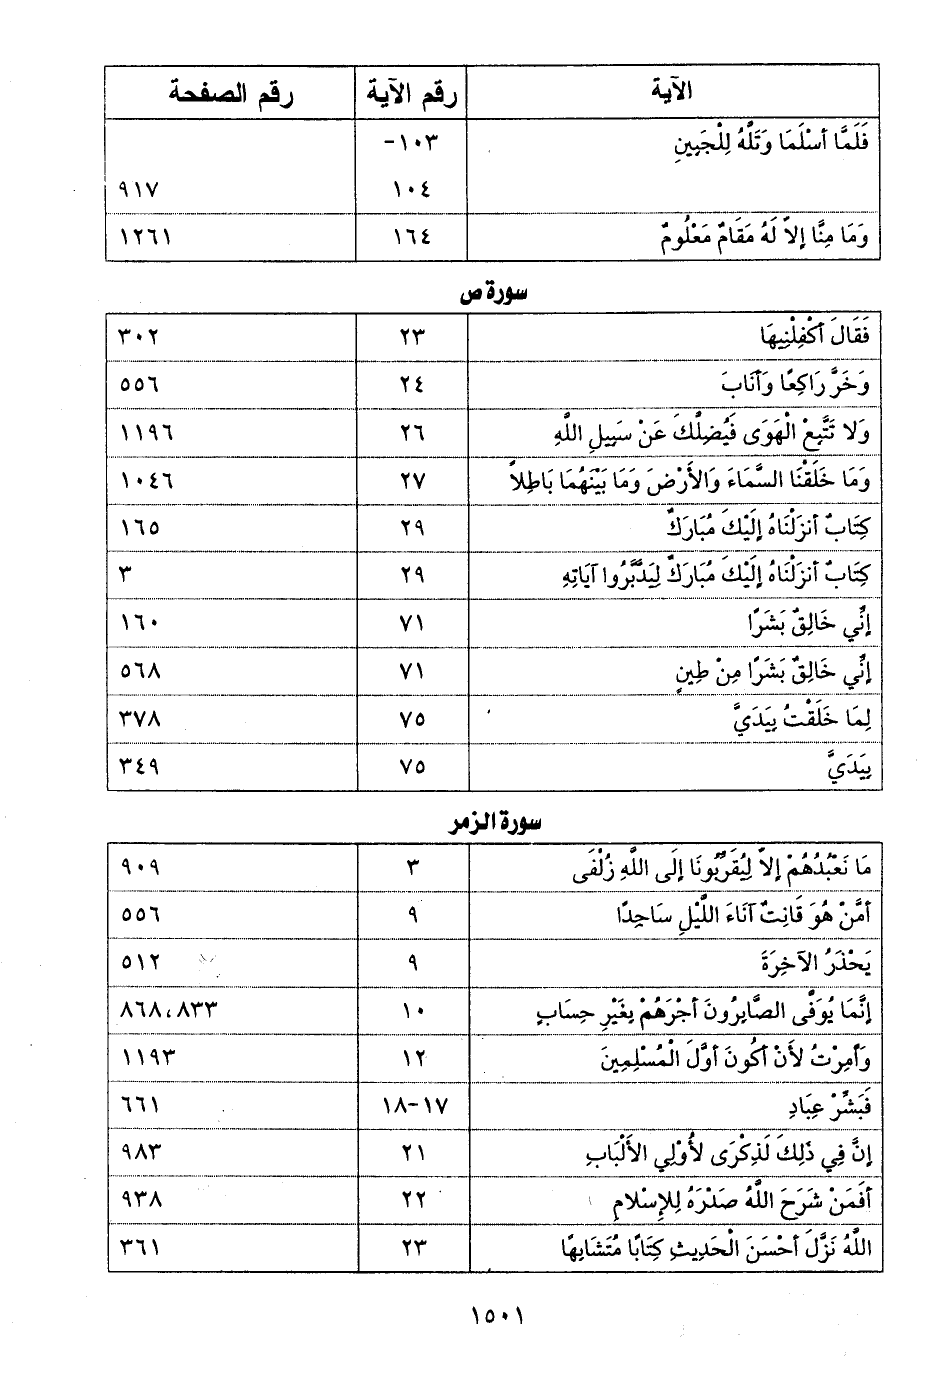 الآية رقم الآية رقم الصفحة
فَلَمَّا أسْلَمَا وَتَلَّهُ لِلْجَبِينِ ١٠٣-
١٠٤ ٩١٧
وَمَا مِنَّا إلاَّ لَهُ مَقَامٌ مَعْلُومٌ ١٦٤ ١٢٦١
سورة ص
فَقَالَ أكْفِلْنِيهَا ٢٣ ٣٠٢
وَخَرَّ رَاكِعًا وَأنَابَ ٢٤ ٥٥٦
وَلا تَتَّبِعْ الْهَوَى فَيُضِلَّكَ عَنْ سَبِيلِ اللَّهِ ٢٦ ١١٩٦
وَمَا خَلَقْنَا السَّمَاءَ وَالأَرْضَ وَمَا بَيْنَهُمَا بَاطِلاً ٢٧ ١٠٤٦
كِتَابٌ أنزَلْنَاهُ إلَيْكَ مُبَارَكٌ ٢٩ ١٦٥
كِتَابٌ أنزَلْنَاهُ إلَيْكَ مُبَارَكٌ لِيَدَّبَّرُوا آيَاتِهِ ٢٩ ٣
إنِّي خَالِقٌ بَشَرًا ٧١ ١٦٠
إنِّي خَالِقٌ بَشَرًا مِنْ طِينٍ ٧١ ٥٦٨
لِمَا خَلَقْتُ بِيَدَيَّ ٧٥ ٣٧٨
بِيَدَيَّ ٧٥ ٣٤٩
سورة الزمر
مَا نَعْبُدُهُمْ إلاَّ لِيُقَرِّبُونَا إلَى اللَّهِ زُلْفَى ٣ ٩٠٩
أمَّنْ هُوَ قَانِتٌ آنَاءَ اللَّيْلِ سَاجِدًا ٩ ٥٥٦
يَحْذَرُ الآخِرَةَ ٩ ٥١٢
إنَّمَا يُوَفَّى الصَّابِرُونَ أجْرَهُمْ بِغَيْرِ حِسَابٍ ١٠ ٨٦٨،٨٣٣
وَأمِرْتُ لأنْ أكُونَ أوَّلَ الْمُسْلِمِينَ ١٢ ١١٩٣
فَبَشِّرْ عِبَادِ ١٧-١٨ ٦٦١
إنَّ فِي ذَلِكَ لَذِكْرَى لأُوْلِي الأَلْبَابِ ٢١ ٩٨٣
أفَمَنْ شَرَحَ اللَّهُ صَدْرَهُ لِلإِسْلامِ ٢٢ ٩٣٨
اللَّهُ نَزَّلَ أحْسَنَ الْحَدِيثِ كِتَابًا مُتَشَابِهًا ٢٣ ٣٦١
١٥٠١